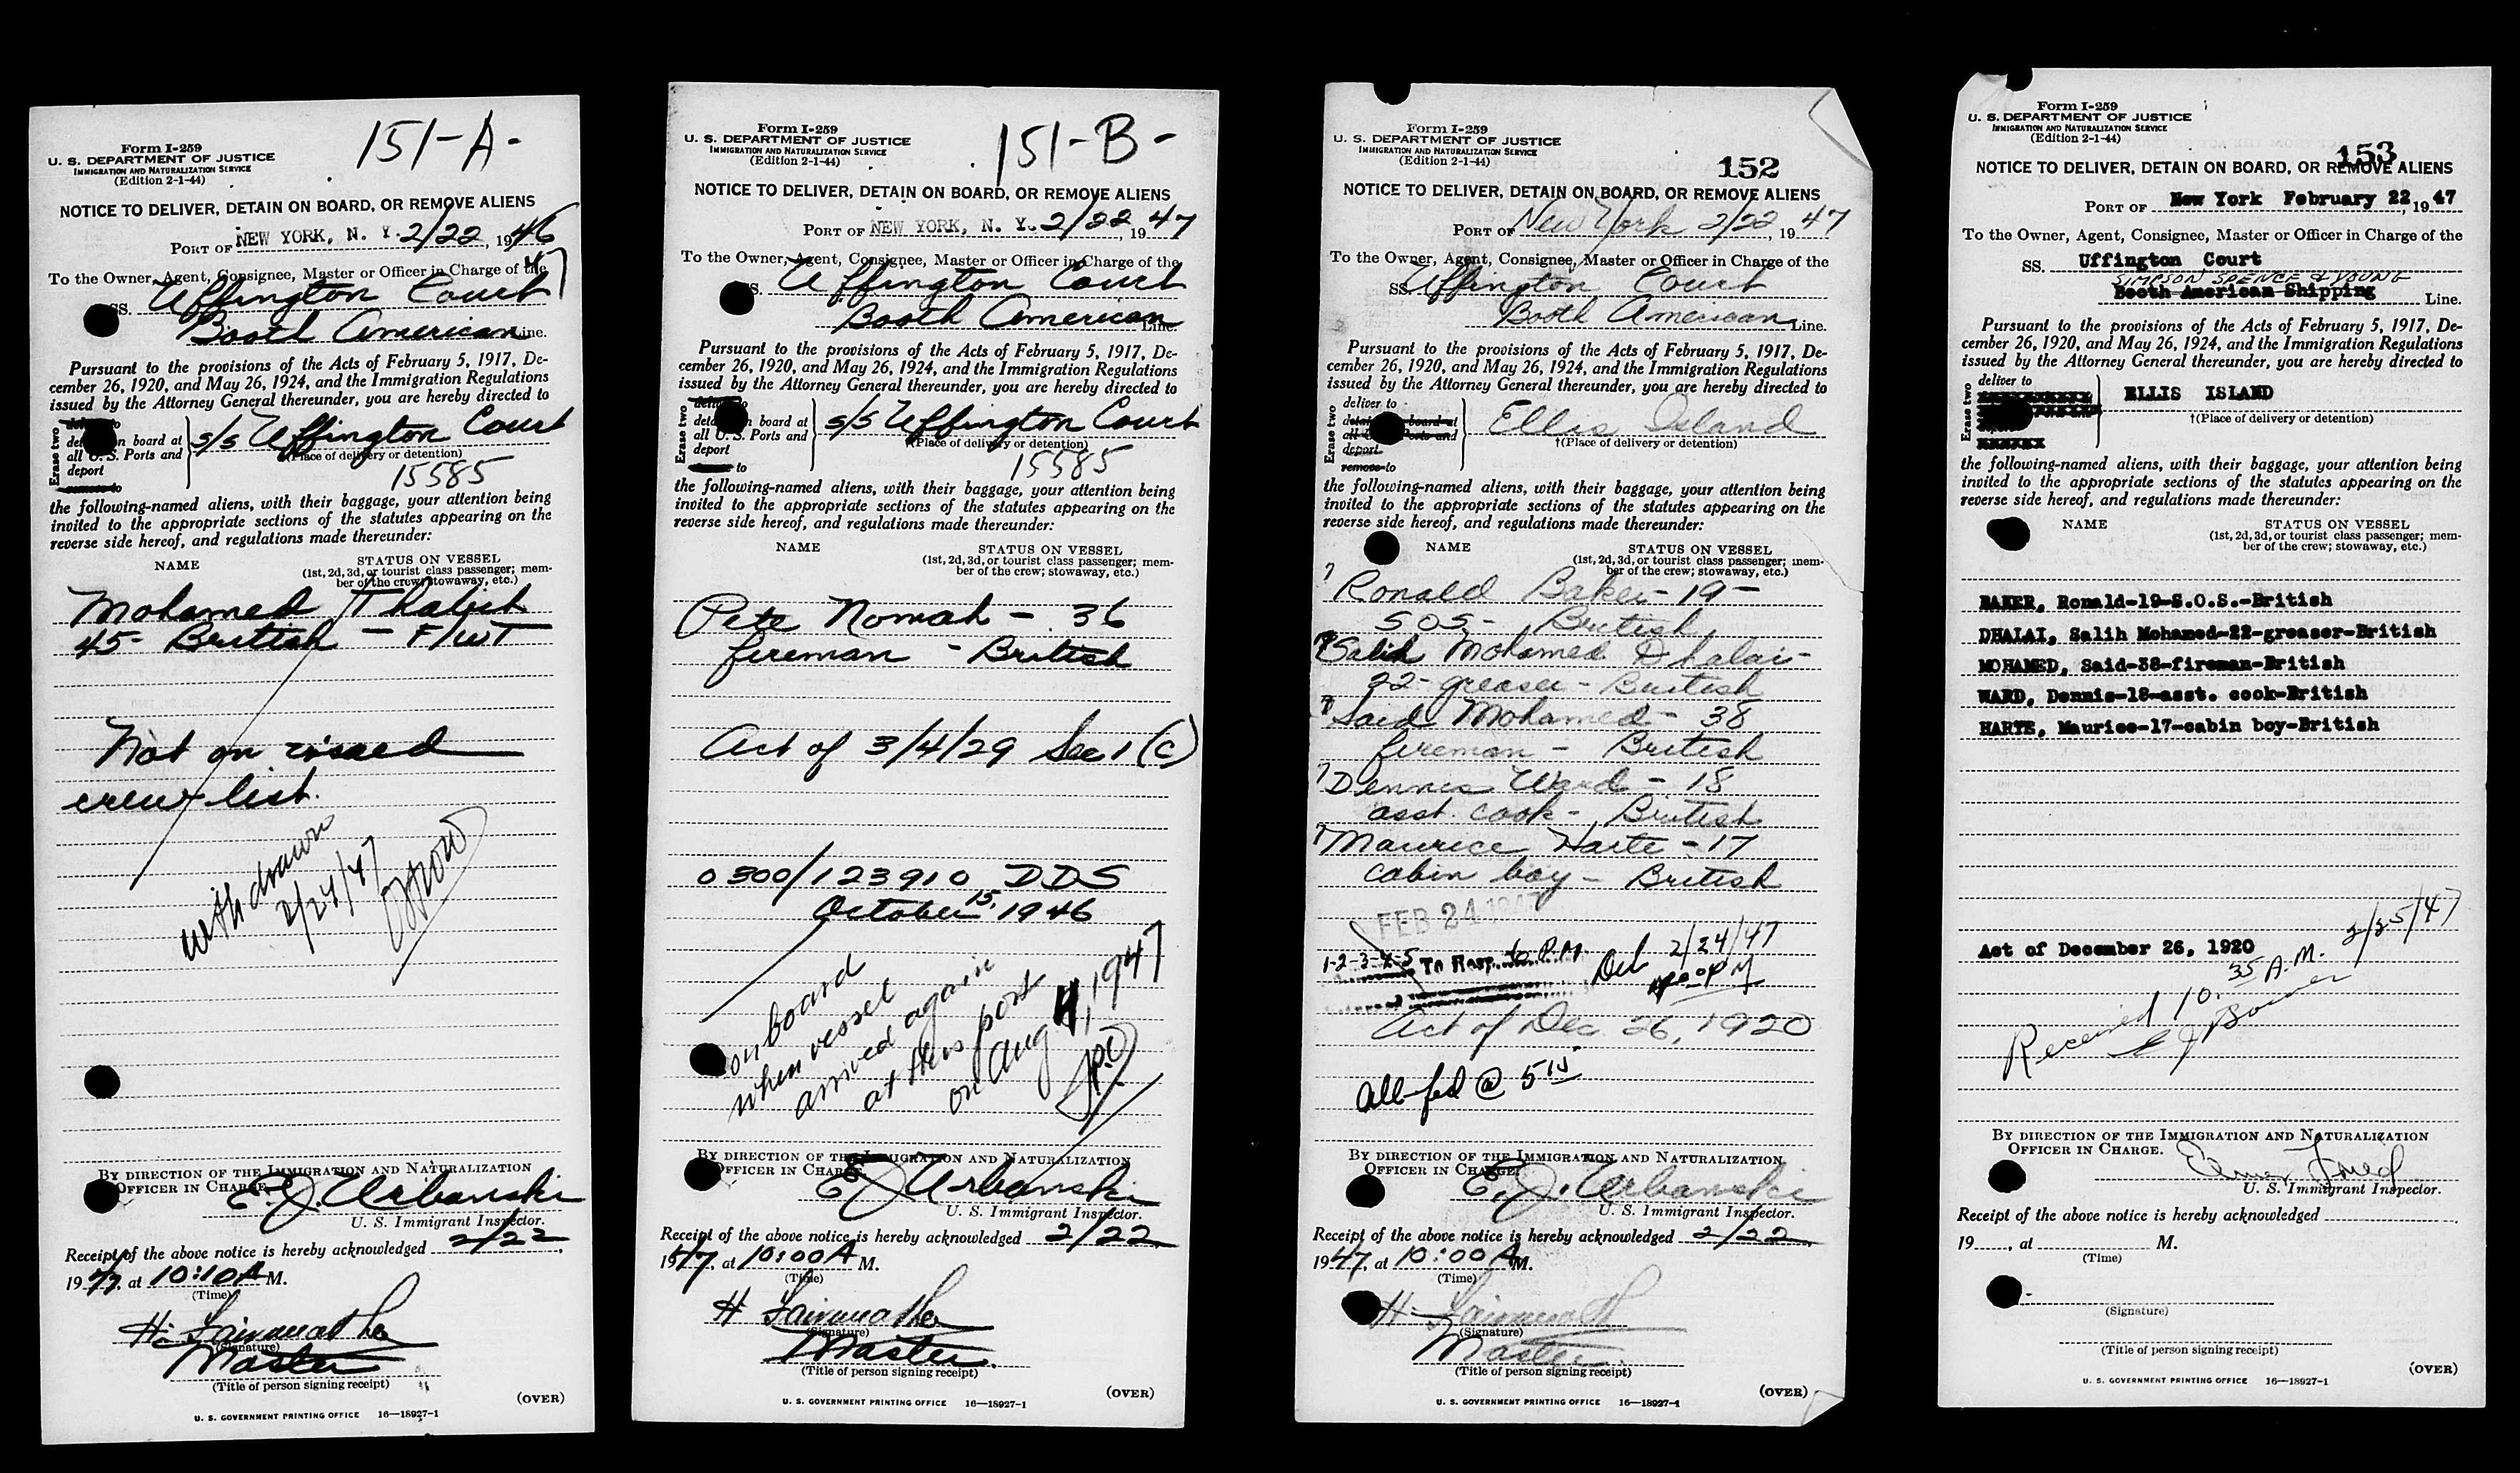 151-A-
Form I-259
U. S. DEPARTMENT OF JUSTICE
IMMIGRATION AND NATURALIZATION SERVICE
(Edition 2-1-44)
NOTICE TO DELIVER, DETAIN ON BOARD, OR REMOVE ALIENS
PORT OF NEW YORK, N. Y. 2/22, 1946
47
To the Owner, Agent, Consignee, Master or Officer in Charge of the
SS. Uffington Court
Booth American Line.
Pursuant to the provisions of the Acts of February 5, 1917, De-
cember 26, 1920, and May 26, 1924, and the Immigration Regulations
issued by the Attorney General thereunder, you are hereby directed to
Erase two
on board at
all U. S. Ports and
deport
s/s Uffington Court
†(Place of delivery or detention)
15585
the following-named aliens, with their baggage, your attention being
invited to the appropriate sections of the statutes appearing on the
reverse side hereof, and regulations made thereunder:
NAME
STATUS ON VESSEL
(1st, 2d, 3d, or tourist class passenger; mem-
ber of the crew; stowaway, etc.)
Mohamed Thabit
45- British - F/WT
Not on visaed
crew list.
withdrawn
2/24/47
BY DIRECTION OF THE IMMIGRATION AND NATURALIZATION
OFFICER IN CHARGE.
E. J. Urbanski
U. S. Immigrant Inspector.
Receipt of the above notice is hereby acknowledged 2/22,
1947, at 10:10 A M.
(Time)
H. Fairweather
(Signature)
Master
(Title of person signing receipt)
(OVER)
U. S. GOVERNMENT PRINTING OFFICE 16—18927-1
151-B-
Form I-259
U. S. DEPARTMENT OF JUSTICE
IMMIGRATION AND NATURALIZATION SERVICE
(Edition 2-1-44)
NOTICE TO DELIVER, DETAIN ON BOARD, OR REMOVE ALIENS
PORT OF NEW YORK, N. Y. 2/22, 1947
To the Owner, Agent, Consignee, Master or Officer in Charge of the
SS. Uffington Court
Booth American Line.
Pursuant to the provisions of the Acts of February 5, 1917, De-
cember 26, 1920, and May 26, 1924, and the Immigration Regulations
issued by the Attorney General thereunder, you are hereby directed to
Erase two
on board at
all U. S. Ports and
deport
to
s/s Uffington Court
†(Place of delivery or detention)
15585
the following-named aliens, with their baggage, your attention being
invited to the appropriate sections of the statutes appearing on the
reverse side hereof, and regulations made thereunder:
NAME
STATUS ON VESSEL
(1st, 2d, 3d, or tourist class passenger; mem-
ber of the crew; stowaway, etc.)
Pete Nomah - 36
fireman - British
Act of 3/4/29 Sec 1 (c)
0300/123910 DDS
October 15, 1946
on board
when vessel
arrived again
at this port
on Aug 4, 1947
BY DIRECTION OF THE IMMIGRATION AND NATURALIZATION
OFFICER IN CHARGE.
E J Urbanski
U. S. Immigrant Inspector.
Receipt of the above notice is hereby acknowledged 2/22,
1947, at 10:00 A M.
(Time)
H Fairweather
(Signature)
Master.
(Title of person signing receipt)
(OVER)
U. S. GOVERNMENT PRINTING OFFICE 16—18927-1
Form I-259
U. S. DEPARTMENT OF JUSTICE
IMMIGRATION AND NATURALIZATION SERVICE
(Edition 2-1-44)
152
NOTICE TO DELIVER, DETAIN ON BOARD, OR REMOVE ALIENS
PORT OF New York 2/22, 1947
To the Owner, Agent, Consignee, Master or Officer in Charge of the
SS. Uffington Court
Booth American Line.
Pursuant to the provisions of the Acts of February 5, 1917, De-
cember 26, 1920, and May 26, 1924, and the Immigration Regulations
issued by the Attorney General thereunder, you are hereby directed to
Erase two
deliver to
detain on board at
all U. S. Ports and
deport
remove to
Ellis Island
†(Place of delivery or detention)
the following-named aliens, with their baggage, your attention being
invited to the appropriate sections of the statutes appearing on the
reverse side hereof, and regulations made thereunder:
NAME
STATUS ON VESSEL
(1st, 2d, 3d, or tourist class passenger; mem-
ber of the crew; stowaway, etc.)
Ronald Baker - 19 -
SOS - British
Salih Mohamed Dhalai -
22 - greaser - British
Said Mohamed - 38
fireman - British
Dennis Ward - 18
asst. cook - British
Maurice Harte - 17
cabin boy - British
FEB 24 1947
1-2-3-4-5 To Hosp. P.M. Del 2/24/47
Act of Dec. 26, 1920
All fed @ 5 15
BY DIRECTION OF THE IMMIGRATION AND NATURALIZATION
OFFICER IN CHARGE.
E. J. Urbanski
U. S. Immigrant Inspector.
Receipt of the above notice is hereby acknowledged 2/22,
1947, at 10:00 A M.
(Time)
H. Fairweather
(Signature)
Master.
(Title of person signing receipt)
(OVER)
U. S. GOVERNMENT PRINTING OFFICE 16—18927-1
Form I-259
U. S. DEPARTMENT OF JUSTICE
IMMIGRATION AND NATURALIZATION SERVICE
(Edition 2-1-44)
153
NOTICE TO DELIVER, DETAIN ON BOARD, OR REMOVE ALIENS
PORT OF New York February 22, 1947
To the Owner, Agent, Consignee, Master or Officer in Charge of the
SS. Uffington Court
SIMPSON SPENCE & YOUNG
Booth American Shipping Line.
Pursuant to the provisions of the Acts of February 5, 1917, De-
cember 26, 1920, and May 26, 1924, and the Immigration Regulations
issued by the Attorney General thereunder, you are hereby directed to
Erase two
deliver to
ELLIS ISLAND
†(Place of delivery or detention)
the following-named aliens, with their baggage, your attention being
invited to the appropriate sections of the statutes appearing on the
reverse side hereof, and regulations made thereunder:
NAME
STATUS ON VESSEL
(1st, 2d, 3d, or tourist class passenger; mem-
ber of the crew; stowaway, etc.)
BAKER, Ronald-19-S.O.S.-British
DHALAI, Salih Mohamed-22-greaser-British
MOHAMED, Said-38-fireman-British
WARD, Dennis-18-asst. cook-British
HARTE, Maurice-17-cabin boy-British
Act of December 26, 1920
Received 10.35 A.M. 2/25/47
BY DIRECTION OF THE IMMIGRATION AND NATURALIZATION
OFFICER IN CHARGE.
U. S. Immigrant Inspector.
Receipt of the above notice is hereby acknowledged
19 , at M.
(Time)
(Signature)
(Title of person signing receipt)
(OVER)
U. S. GOVERNMENT PRINTING OFFICE 16—18927-1